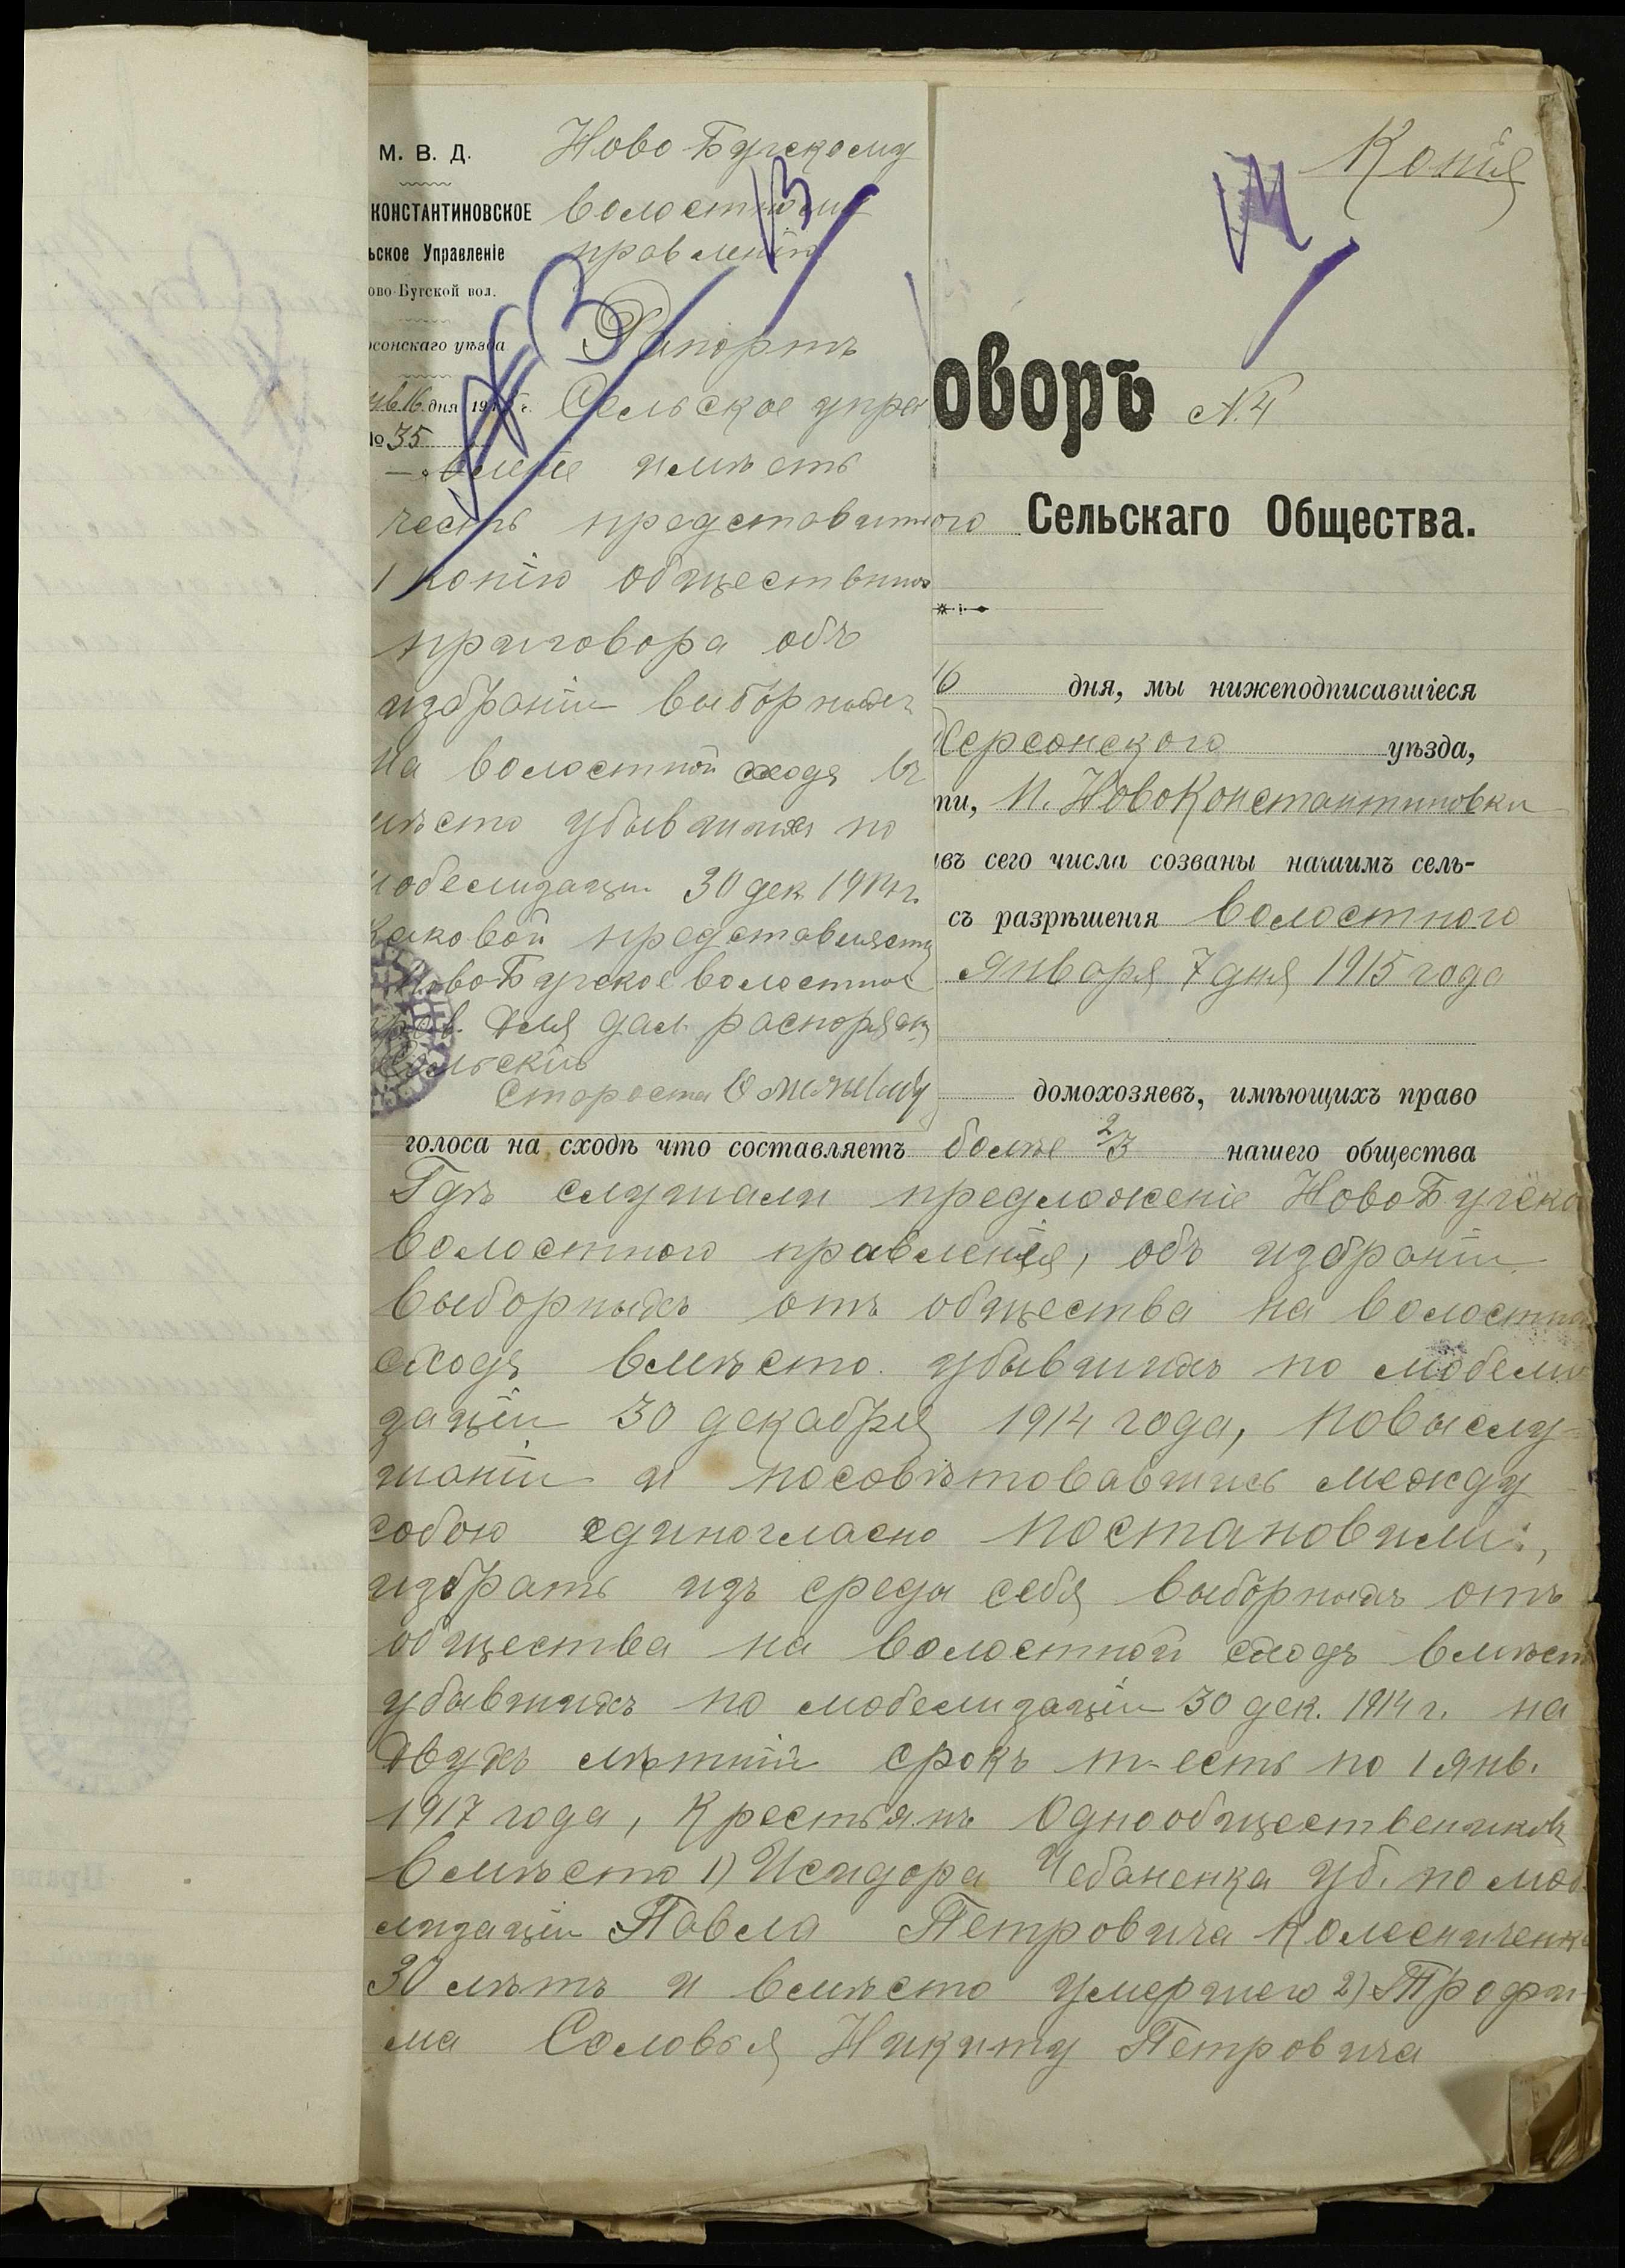 М. В. Д.
КОНСТАНТИНОВСКОЕ
ьское Управленіе
ово-Бугской вол.
рсонскаго уѣзда
16 дня 191 г.
№ 35
Ново Бугскому
волостному
правленію
Рапортъ
Сельское управ
вленіе имѣетъ
честь представить
1 копію общественнаго
приговора объ
избраніи выборныхъ
на волостной сходъ въ
мѣсто убывшихъ по
мобелизаціи 30 дек 1914 г.
каковой представляетъ
Ново Бугское волостное
прав. для дал. распоряж
Сельскій
Староста
Копія
14
оворъ № 4
ого Сельскаго Общества.
16 дня, мы нижеподписавшіеся
Херсонскаго уѣзда,
ти, п. Новоконстантиновки
ивъ сего числа созваны нашимъ сель-
съ разрѣшенія волостного
января 7 дня 1915 года
домохозяевъ, имѣющихъ право
голоса на сходѣ что составляетъ болѣе 2/3 нашего общества
Гдѣ слушали предложеніе Ново Бугско
волостного правленія, объ избраніи
выборныхъ отъ общества на волостно
сходъ вмѣсто убывшихъ по мобели
заціи 30 декабря 1914 года, повыслу-
шаніи и посовѣтовавшись между
собою единогласно постановили:,
избрать изъ среды себя выборныхъ отъ
общества на волостной сходъ вмѣст
убывшихъ по мобелизаціи 30 дек. 1914 г. на
двухъ лѣтній срокъ т-есть по 1 янв.
1917 года, крестьянъ Однообщественниковъ
вмѣсто 1) Исидора Чебаненка уб. по моб.
лизаціи Павла Петровича Колесниченка
30 лѣтъ и вмѣсто умершего 2) Трофи-
ма Соловья Никиту Петровича